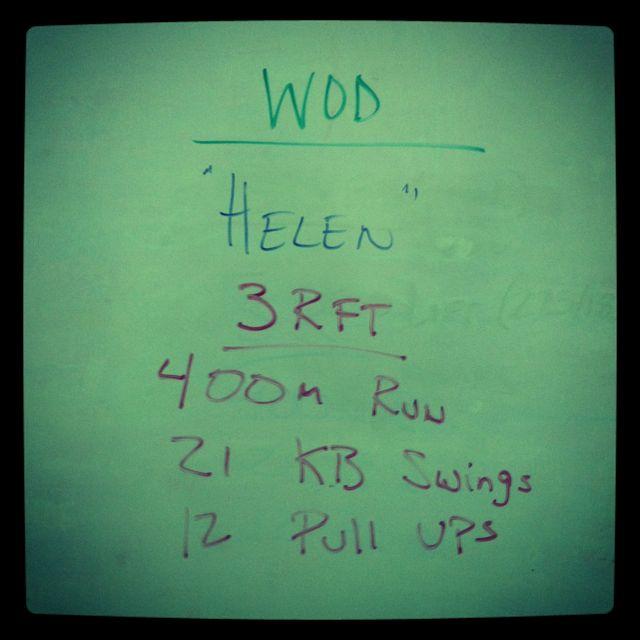 WOD
"HELEN"
3 RFT
400m RUN
21 KB Swings
12 Pull UPs